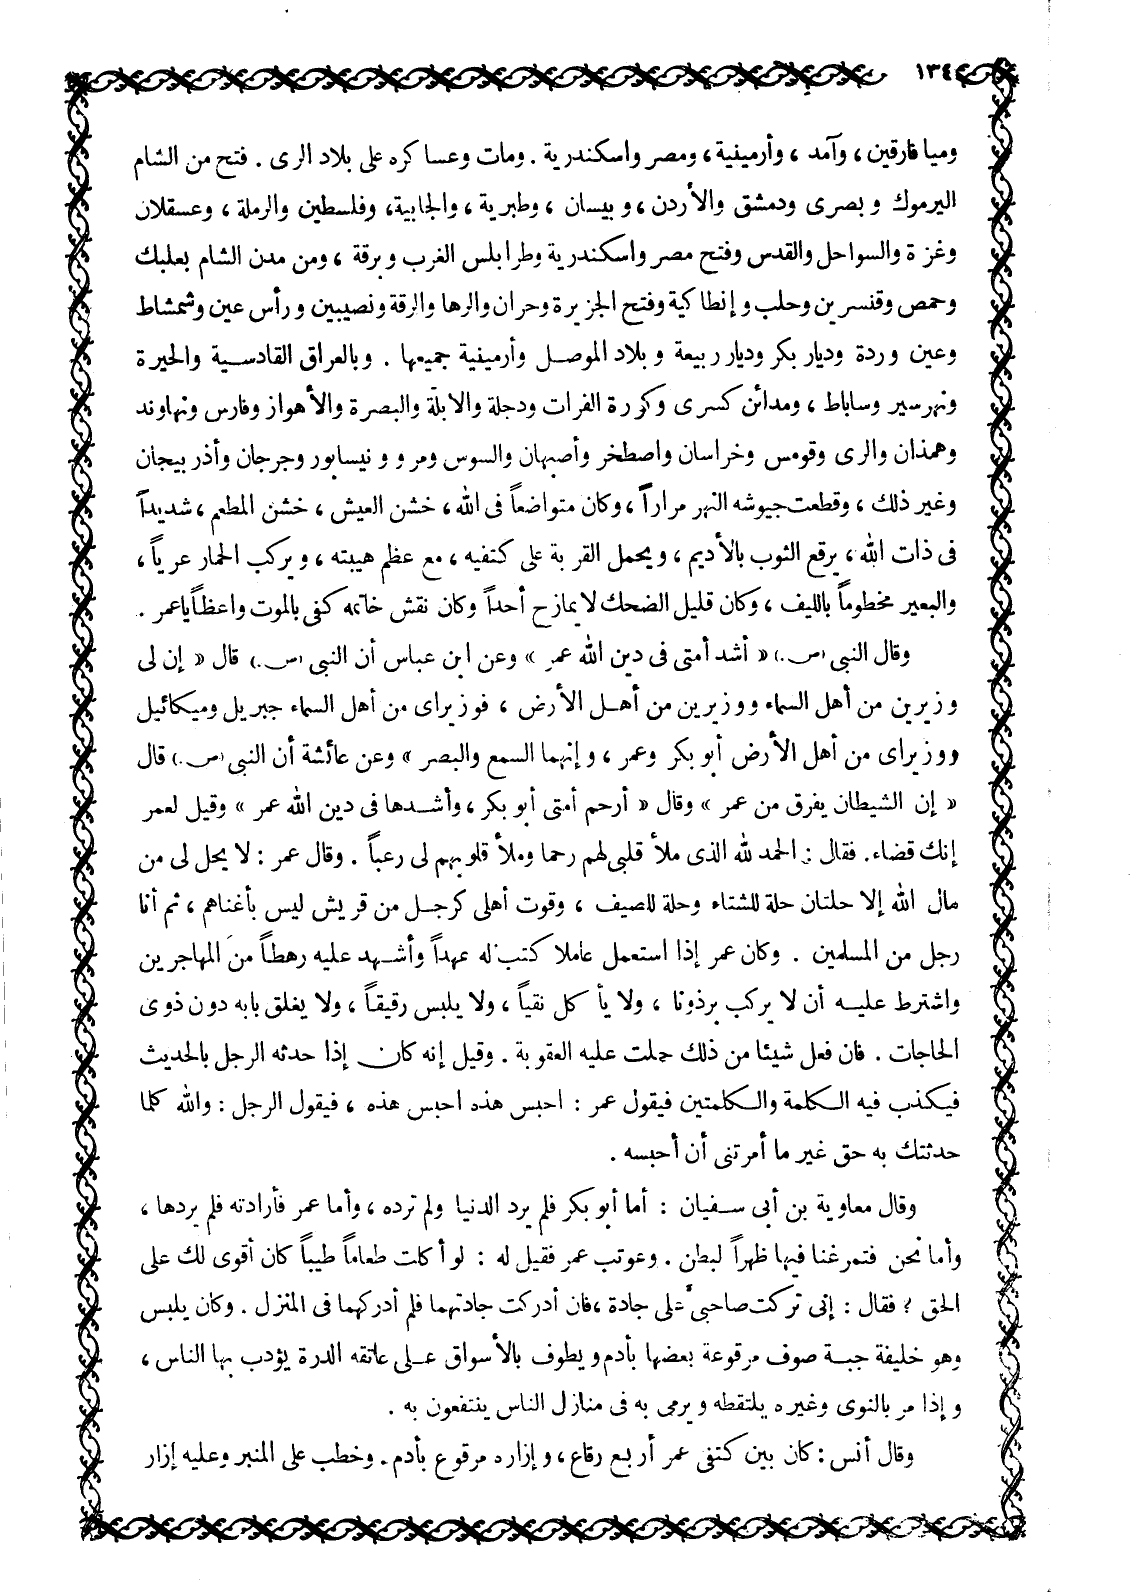 ١٣٤
وميا فارقين ، وآمد ، وأرمينية ، ومصر واسكندرية . ومات وعساكره على بلاد الرى . فتح من الشام
اليرموك وبصرى ودمشق والأردن ، وبيسان ، وطبرية ، والجابية ، وفلسطين والرملة ، وعسقلان
وغزة والسواحل والقدس وفتح مصر واسكندرية وطرابلس الغرب وبرقة ، ومن مدن الشام بعلبك
وحمص وقنسرين وحلب وإنطاكية وفتح الجزيرة وحران والرها والرقة ونصيبين ورأس عين وشمشاط
وعين وردة وديار بكر وديار ربيعة وبلاد الموصل وأرمينية جميعها . وبالعراق القادسية والحيرة
ونهرسير وساباط ، ومدائن كسرى وكورة الفرات ودجلة والابلة والبصرة والأهواز وفارس ونهاوند
وهمذان والرى وقومس وخراسان واصطخر وأصبهان والسوس ومرو ونيسابور وجرجان وأذربيجان
وغير ذلك ، وقطعت جيوشه النهر مراراً ، وكان متواضعاً فى الله ، خشن العيش ، خشن المطعم ، شديداً
فى ذات الله ، يرقع الثوب بالأديم ، ويحمل القربة على كتفيه ، مع عظم هيبته ، ويركب الحمار عرياً ،
والبعير مخطوماً بالليف ، وكان قليل الضحك لا يمازح أحداً وكان نقش خاتمه كفى بالموت واعظاً يا عمر .
وقال النبى (ص.) « أشد أمتى فى دين الله عمر » وعن ابن عباس أن النبى (ص.) قال « إن لى
وزيرين من أهل السماء ووزيرين من أهل الأرض ، فوزيراى من أهل السماء جبريل وميكائيل
ووزيراى من أهل الأرض أبو بكر وعمر ، وإنهما السمع والبصر » وعن عائشة أن النبى (ص.) قال
« إن الشيطان يفرق من عمر » وقال « أرحم أمتى أبو بكر ، وأشدها فى دين الله عمر » وقيل لعمر
إنك قضاء. فقال : الحمد لله الذى ملأ قلبى لهم رحما وملأ قلوبهم لى رعباً . وقال عمر : لا يحل لى من
مال الله إلا حلتان حلة للشتاء وحلة للصيف ، وقوت أهلى كرجل من قريش ليس بأغناهم ، ثم أنا
رجل من المسلمين . وكان عمر إذا استعمل عاملا كتب له عهداً وأشهد عليه رهطاً من المهاجرين
واشترط عليه أن لا يركب برذونا ، ولا يأكل نقياً ، ولا يلبس رقيقاً ، ولا يغلق بابه دون ذوى
الحاجات . فان فعل شيئا من ذلك حلت عليه العقوبة . وقيل إنه كان إذا حدثه الرجل بالحديث
فيكذب فيه الكلمة والكلمتين فيقول عمر : احبس هذه احبس هذه ، فيقول الرجل : والله كلما
حدثتك به حق غير ما أمرتنى أن أحبسه .
وقال معاوية بن أبى سفيان : أما أبو بكر فلم يرد الدنيا ولم ترده ، وأما عمر فأرادته فلم يردها ،
وأما نحن فتمرغنا فيها ظهراً لبطن . وعوتب عمر فقيل له : لو أكلت طعاماً طيباً كان أقوى لك على
الحق ؟ فقال : إنى تركت صاحبى على جادة ، فان أدركت جادتهما فلم أدركهما فى المنزل . وكان يلبس
وهو خليفة جبة صوف مرقوعة بعضها بأدم ويطوف بالأسواق على عاتقه الدرة يؤدب بها الناس ،
وإذا مر بالنوى وغيره يلتقطه ويرمى به فى منازل الناس ينتفعون به .
وقال أنس : كان بين كتفى عمر أربع رقاع ، وإزاره مرقوع بأدم. وخطب على المنبر وعليه إزار